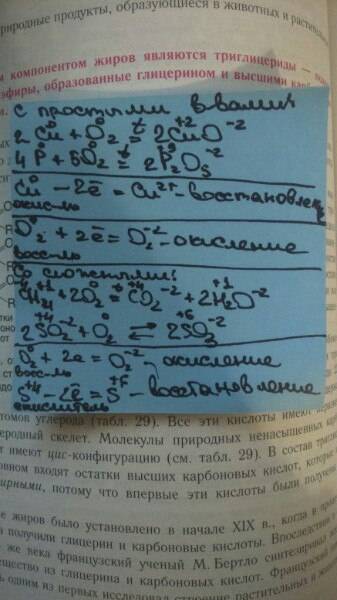 природные продукты, образующиеся в животных и растител
м компонентом жиров являются триглицериды —
эфиры, образованные глицерином и высшими
С простыми в-вами:
2Cu⁰ + O₂⁰ =ᵗ 2Cu⁺²O⁻²
4P⁰ + 5O₂⁰ =ᵗ 2P₂O₅⁻²
Cu⁰ − 2ē = Cu²⁺ - восстановление
окис-ль
O₂⁰ + 2ē = O₂⁻² - окисление
восс-ль
Со сложными:
C⁻⁴H₄⁺¹ + 2O₂⁰ = C⁺⁴O₂⁻² + 2H₂⁺¹O⁻²
2S⁺⁴O₂⁻² + O₂⁰ ⇄ 2S⁺⁶O₃⁻²
O₂⁰ + 2ē = O₂⁻² - окисление
восс-ль
S⁺⁴ − 2ē = S⁺⁶ - восстановление
окислитель
томов углерода (табл. 29). Все эти кислоты имеют
еродный скелет. Молекулы природных ненасыщенных
т имеют цис-конфигурацию (см. табл. 29). В состав
овном входят остатки высших карбоновых кислот, которые
ирными, потому что впервые эти кислоты были получены
е жиров было установлено в начале XIX в., когда в
а получили глицерин и карбоновые кислоты. Впоследствии
же века французский ученый М. Бертло синтезировал
ещество из глицерина и карбоновых кислот. Французский
ь одним из первых исследовал строение растительных и